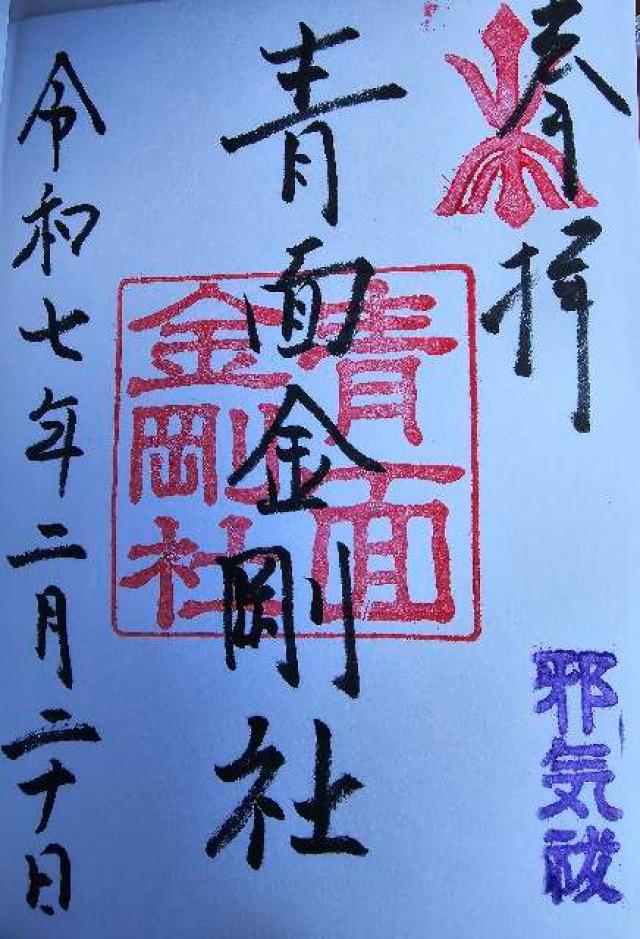 奉拝
邪気祓
青面金剛社
青面
金剛社
令和七年二月二十日